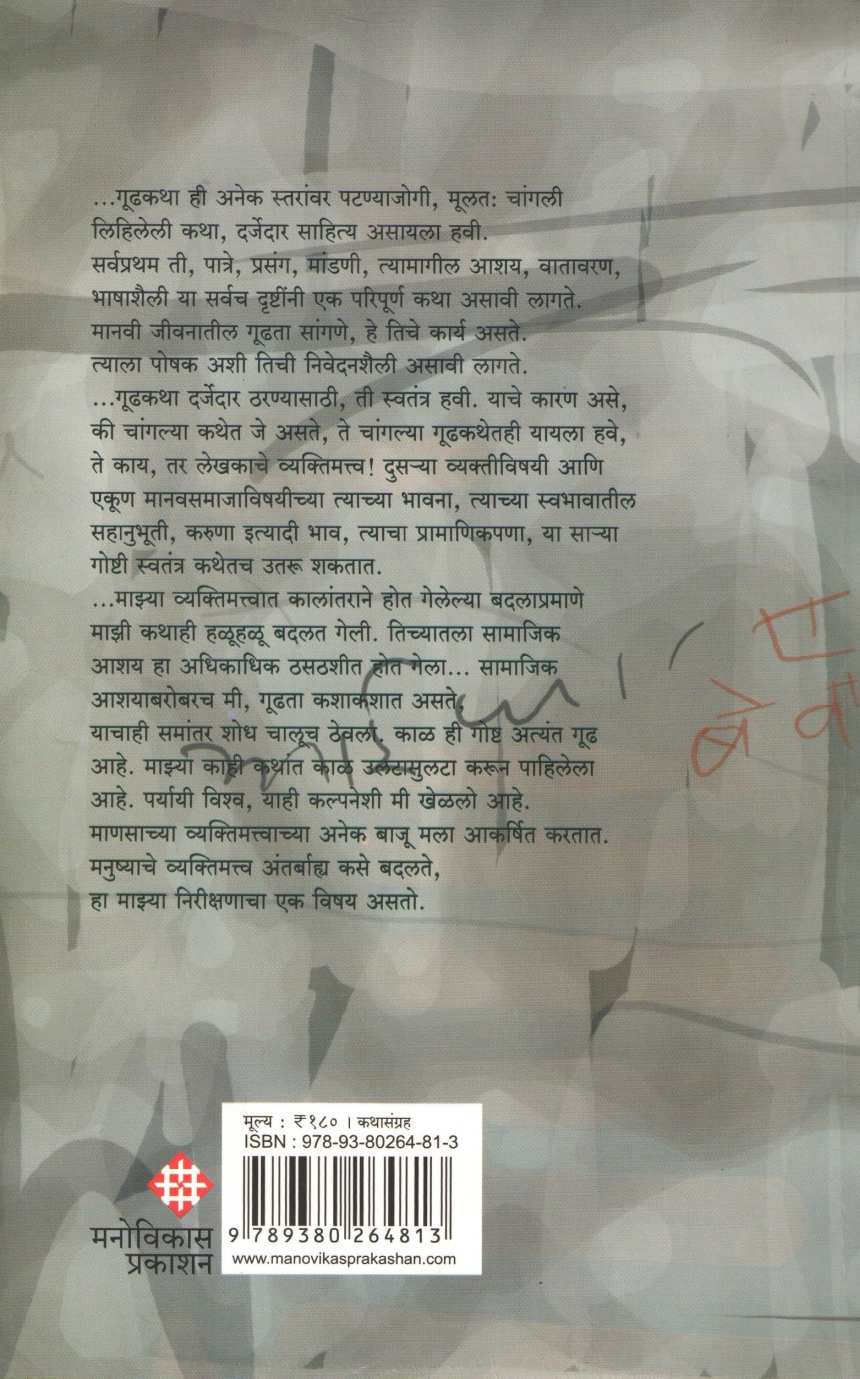 ...गूढकथा ही अनेक स्तरांवर पटण्याजोगी, मूलतः चांगली
लिहिलेली कथा, दर्जेदार साहित्य असायला हवी.
सर्वप्रथम ती, पात्रे, प्रसंग, मांडणी, त्यामागील आशय, वातावरण,
भाषाशैली या सर्वच दृष्टींनी एक परिपूर्ण कथा असावी लागते.
मानवी जीवनातील गूढता सांगणे, हे तिचे कार्य असते.
त्याला पोषक अशी तिची निवेदनशैली असावी लागते.
...गूढकथा दर्जेदार ठरण्यासाठी, ती स्वतंत्र हवी. याचे कारण असे,
की चांगल्या कथेत जे असते, ते चांगल्या गूढकथेतही यायला हवे,
ते काय, तर लेखकाचे व्यक्तिमत्त्व! दुसऱ्या व्यक्तीविषयी आणि
एकूण मानवसमाजाविषयीच्या त्याच्या भावना, त्याच्या स्वभावातील
सहानुभूती, करुणा इत्यादी भाव, त्याचा प्रामाणिकपणा, या साऱ्या
गोष्टी स्वतंत्र कथेतच उतरू शकतात.
...माझ्या व्यक्तिमत्त्वात कालांतराने होत गेलेल्या बदलाप्रमाणे
माझी कथाही हळूहळू बदलत गेली. तिच्यातला सामाजिक
आशय हा अधिकाधिक ठसठशीत होत गेला... सामाजिक
आशयाबरोबरच मी, गूढता कशाकशात असते,
याचाही समांतर शोध चालूच ठेवला. काळ ही गोष्ट अत्यंत गूढ
आहे. माझ्या काही कथांत काळ उलटासुलटा करून पाहिलेला
आहे. पर्यायी विश्व, याही कल्पनेशी मी खेळलो आहे.
माणसाच्या व्यक्तिमत्त्वाच्या अनेक बाजू मला आकर्षित करतात.
मनुष्याचे व्यक्तिमत्त्व अंतर्बाह्य कसे बदलते,
हा माझ्या निरीक्षणाचा एक विषय असतो.
मूल्य : ₹ १८० । कथासंग्रह
ISBN : 978-93-80264-81-3
9 789380 264813
www.manovikasprakashan.com
मनोविकास
प्रकाशन